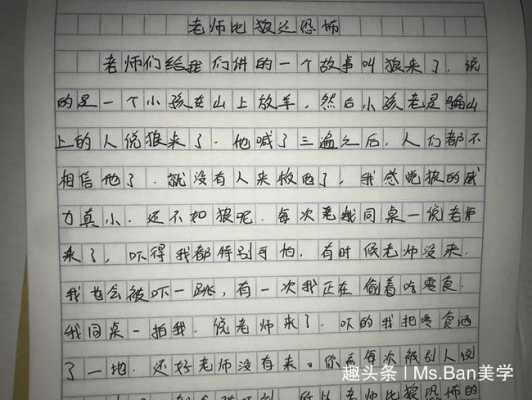 老师比狼还恐怖
老师们给我们讲的一个故事叫狼来了．说
的是一个小孩在山上放羊．然后小孩老是骗山
上的人说狼来了．他喊了三遍之后．人们都不
相信他了．就没有人来救他了，我感觉狼的威
力真小．还不如狼呢．每次老我同桌一说老师
来了，吓得我都特别可怕．有时候老师没来．
我也会被吓一跳，有一次我正在偷着吃零食．
我同桌一拍我．说老师来了．吓的我把零食洒
了一地．还好老师没有来．你看每次被别人说
老师比狼恐怖的
趣头条 | Ms.Ban美学